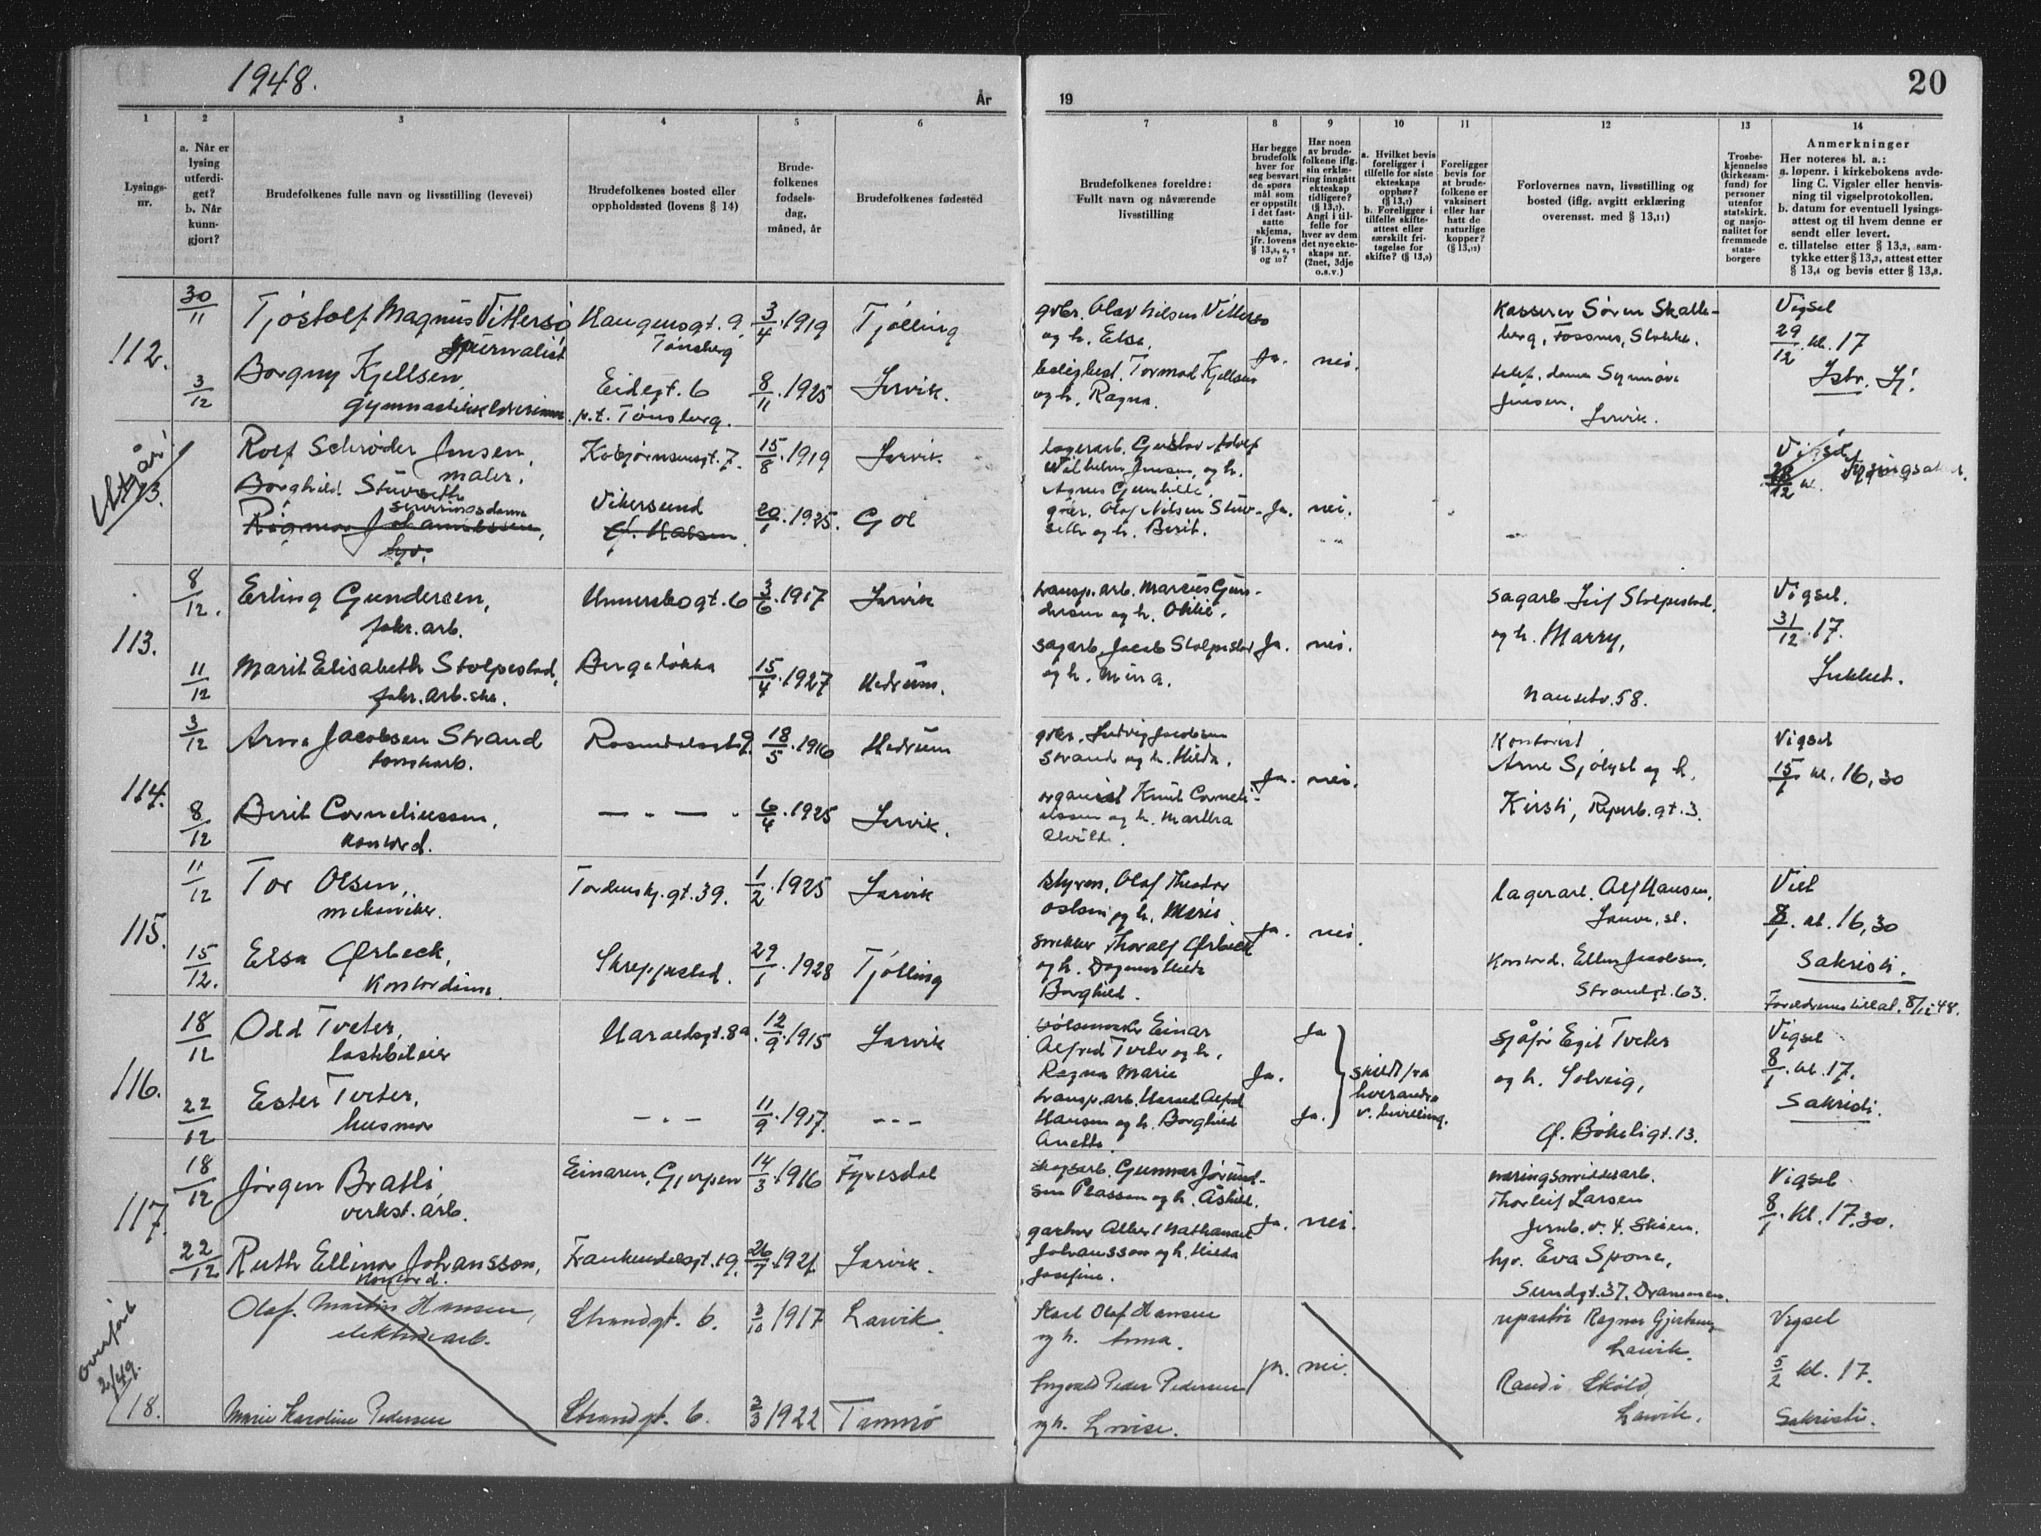 1948.
År
19
20
1
2
3
4
5
6
7
8
9
10
11
12
13
14
Lysings-
nr.
a. Når er
lysing
utferdi-
get?
b. Når
kunn-
gjort?
Brudefolkenes fulle navn og livsstilling (levevei)
Brudefolkenes bosted eller
oppholdssted (lovens § 14)
Brude-
folkenes
fødsels-
dag,
måned, år
Brudefolkenes fødested
Brudefolkenes foreldre:
Fullt navn og nåværende
livsstilling
Har begge
brudefolk
hver for
seg besvart
de spørs
mål som
er oppstilt
i det fast-
satte
skjema,
jfr. lovens
Har noen
av brude-
folkene iflg.
sin erklæ-
ring inngått
ekteskap
tidligere?
Angi i til-
felle for
hver av dem
det nye ekte-
skaps nr.
(2net, 3dje
o.s.v.)
a. Hvilket bevis
foreligger i
tilfelle for siste
ekteskaps
opphør?
b. Foreligger i
tilfelle skifte-
attest eller
særskilt fri-
tagelse for
Foreligger
bevis for
at brude-
folkene er
vaksinert
eller har
hatt de
naturlige
kopper?
Forlovernes navn, livsstilling og
bosted (iflg. avgitt erklæring
overensst. med § 13,11)
Trosbe-
kjennelse
(kirkesam-
fund) for
personer
utenfor
statskirk.
og nasjo-
nalitet for
fremmede
stats-
borgere
Anmerkninger
Her noteres bl. a.:
a. løpenr. i kirkebokens avde-
ling C. Vigsler eller henvis-
ning til vigselprotokollen.
b. datum for eventuell lysings-
attest og til hvem denne er
sendt eller levert.
c. tillatelse etter § 13,2, sam-
tykke etter § 13,3, attest etter
§ 13,4 og bevis etter § 13,8.
112.
30/11
3/12
Tjøstolf Magnus Vittersø
journalist
Haugensgt. 9
Tønsberg
3/4 1919
Tjølling
gbr. Olav Nilsen Vittersø
og h. Else.
Kasserer Søren Skalle-
berg, Fossnes, Stokke.
Vigsel
29/12 kl. 17
Borgny Kjellsen,
Eidegt. 6
p.t. Tønsberg.
8/11 1925
Larvik.
Tormod Kjellsen
og h. Ragna.
Ja. nei.
Jensen,
Larvik.
Utgår
Rolf Schrøder Jensen,
maler.
15/8 1919
Larvik
lagerarb. Gustav Adolf
Wilhelm Jensen og h.
Agnes Gunhilde.
Vigsel
Borghild
Vikersund
20/1 1925.
Gol
Olaf Nilsen
og h. Berit.
Ja. nei.
113.
8/12.
11/12
Erling Gundersen,
fabr. arb.
3/6 1917
Larvik
transp. arb. Marcus Gun-
dersen og h. Othilie.
sagarb. Leif Stolpestad,
og h. Marry,
Nansetv. 58.
Vigsel.
31/12 17.
Lukket.
Marit Elisabeth Stolpestad,
fabr. arb.ske.
Bergeløkka
15/4 1927
Hedrum.
sagarb. Jacob Stolpestad
og h. Mina.
Ja. nei.
114.
3/12
8/12
Arne Jacobsen Strand
tomtarb.
18/5 1916
Hedrum
gbr. Ludvig Jacobsen
Strand og h. Hilda.
Kontorist
Arne Sjølyst og h.
Kirsti, Reperb.gt. 3.
Vigsel
15/1 kl. 16,30
Berit Corneliussen,
kontord.
— " —
6/4 1925
Larvik.
organist Knut Corneli-
ussen og h. Martha
Alvilde.
Ja. nei.
115.
11/12
15/12.
Tor Olsen,
mekaniker.
Tordenskj.gt. 39.
1/2 1925
Larvik
styrm. Olaf Theodor
Olsen og h. Marie
lagerarb. Alf Hansen,
Viel
8/1. kl. 16,30
Sakristi.
Elsa Ørbeck,
Kontordame.
Skreppestad.
29/1 1928
Tjølling
snekker Thoralf Ørbeck
og h. Dagmar Hilda
Borghild.
Ja. nei.
Kontord. Ellen Jacobsen,
Strandgt. 63.
Foreldrenes tillat. 8/12 48.
116.
18/12
22/12
Odd Tveter,
lastebileier
Haraldsgt. 8a
12/9 1915
Larvik
Einar
Alfred Tveter og h.
Ragna Marie
Ja
skilt fra
hverandre
v. bevilling.
sjåfør Egil Tveter
og h. Solveig,
Ø. Bøkeligt. 13.
Vigsel
8/1. kl. 17.
Sakristi.
Ester Tveter,
husmor
— " —
11/9 1917.
transp. arb. Harald Alfred
Hansen og h. Borghild
Anette.
Ja.
Ja.
117.
18/12
22/12
Jørgen Bratli
verkst. arb.
Einaren, Gjerpen
14/3 1916
Fyresdal
skogsarb. Gunnar Jørund-
sen Plassen og h. Åshild.
Thorleif Larsen
Jernb. v. 4. Skien.
Vigsel
8/1. kl. 17.30.
Ruth Ellinor Johansson,
Kontord.
Frankendalsgt. 19.
26/7 1921.
Larvik.
gartner Albert Nathanael
Johansson og h. Hilda
Josefine.
Ja. nei.
Eva Spone,
Sundgt. 37. Drammen.
Overført
2/49.
118.
Olaf Martin Hansen,
elektr. arb.
Strandgt. 6.
3/10 1917
Larvik.
Karl Olaf Hansen
og h. Anna.
reparatør Ragnar
Larvik.
Vigsel
5/2 kl. 17.
Sakristi.
Marie Karoline Pedersen
Strandgt. 6.
3/3 1922
Tromsø
Ingvald Peder Pedersen
og h. Lovise.
ja. nei.
Randi Skøld,
Larvik.